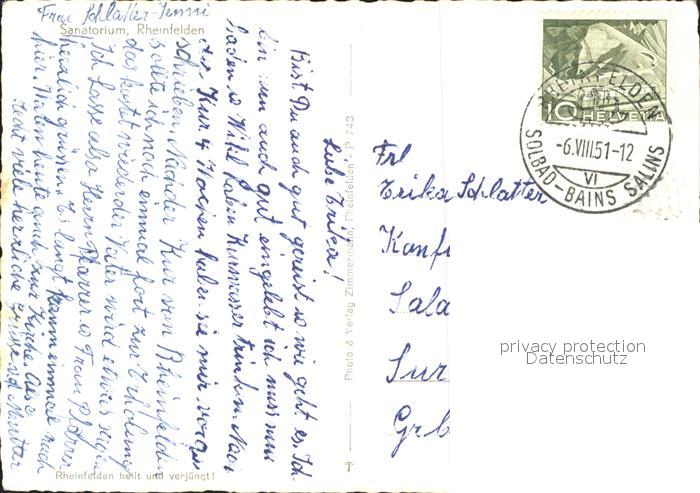 Frau Schlatter-Jenni
Sanatorium, Rheinfelden
Liebe Erika!
Bist Du auch gut gereist u wie geht es. Ich
bin nun auch gut eingelebt ich muss nun
baden u Wickel haben Kurwasser trinken. Nach
der Kur 4 Wochen haben sie mir vorge
schrieben. Nach der Kur von Rheinfelden
sollte ich noch einmal fort zur Erholung
das kostet wieder der Vater wird etwas sagen
Ich lasse also Herrn Pfarrer u Frau Pfarrer
herzlich grüssen. Es langt kaum einmal nach
hier. Waren heute auch zur Kirche. Also
recht viele herzliche Grüsse v d Mutter
Rheinfelden heilt und verjüngt!
Photo & Verlag Zimmermann, Rheinfelden P 243
10 HELVETIA
RHEINFELDEN
-6.VIII.51-12
VI
SOLBAD-BAINS SALINS
Frl
Erika Schlatter
Konf
Sala
Sur
Grb
privacy protection
Datenschutz